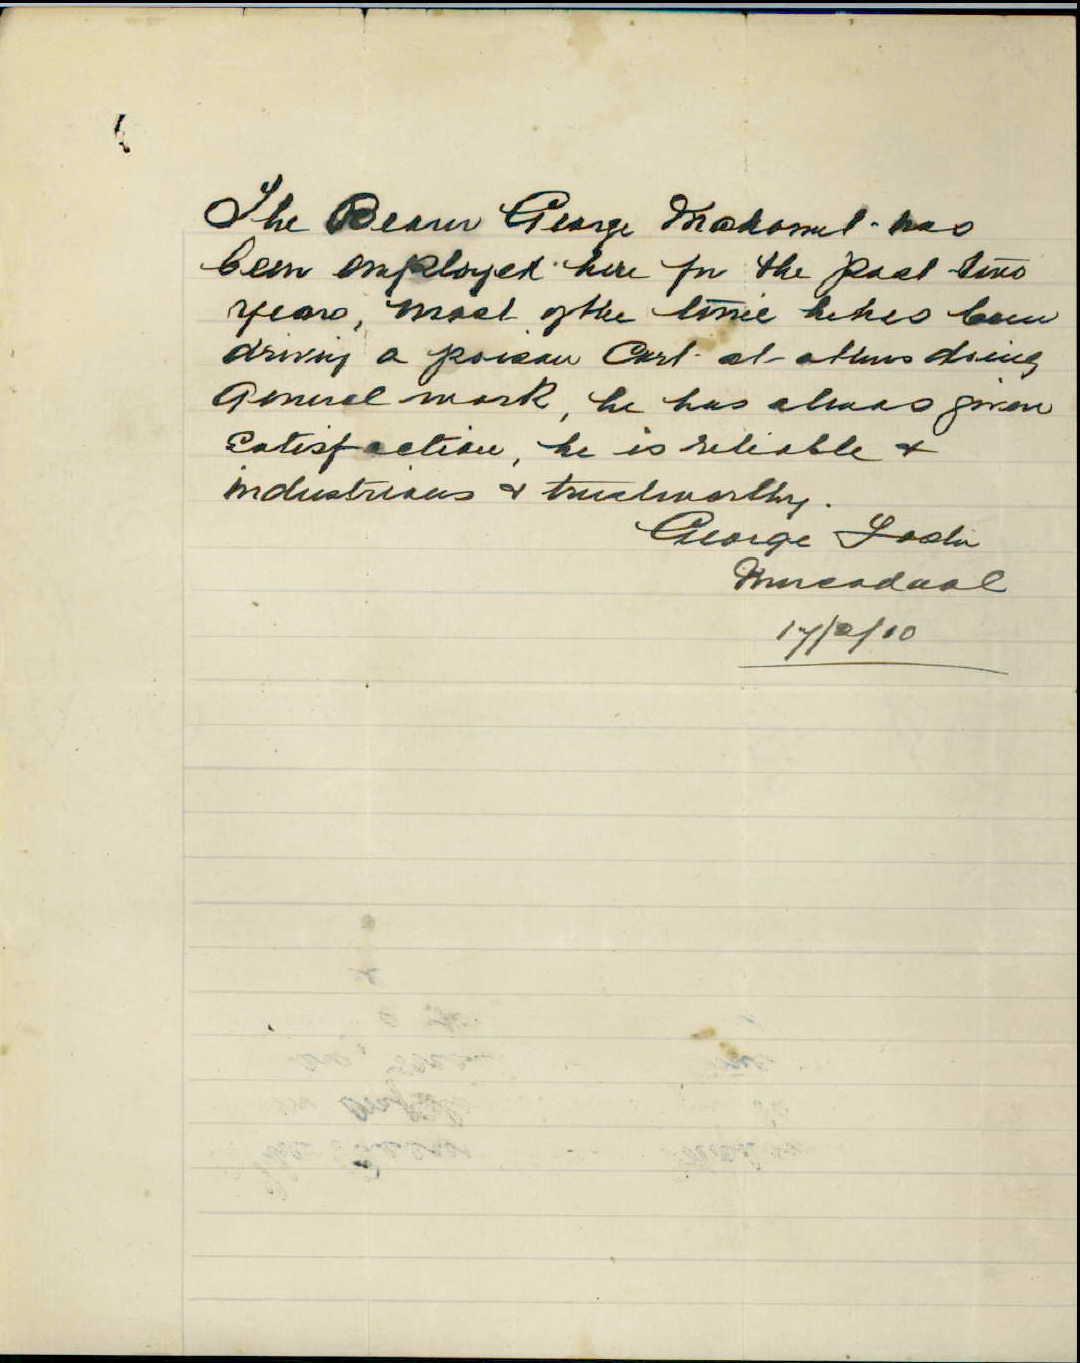 The Bearer George Mahomet has
been employed here for the past two
years, most of the time he has been
driving a poison Cart at others doing
General work, he has always given
satisfaction, he is reliable &
industrious & trustworthy.
George
17/2/10